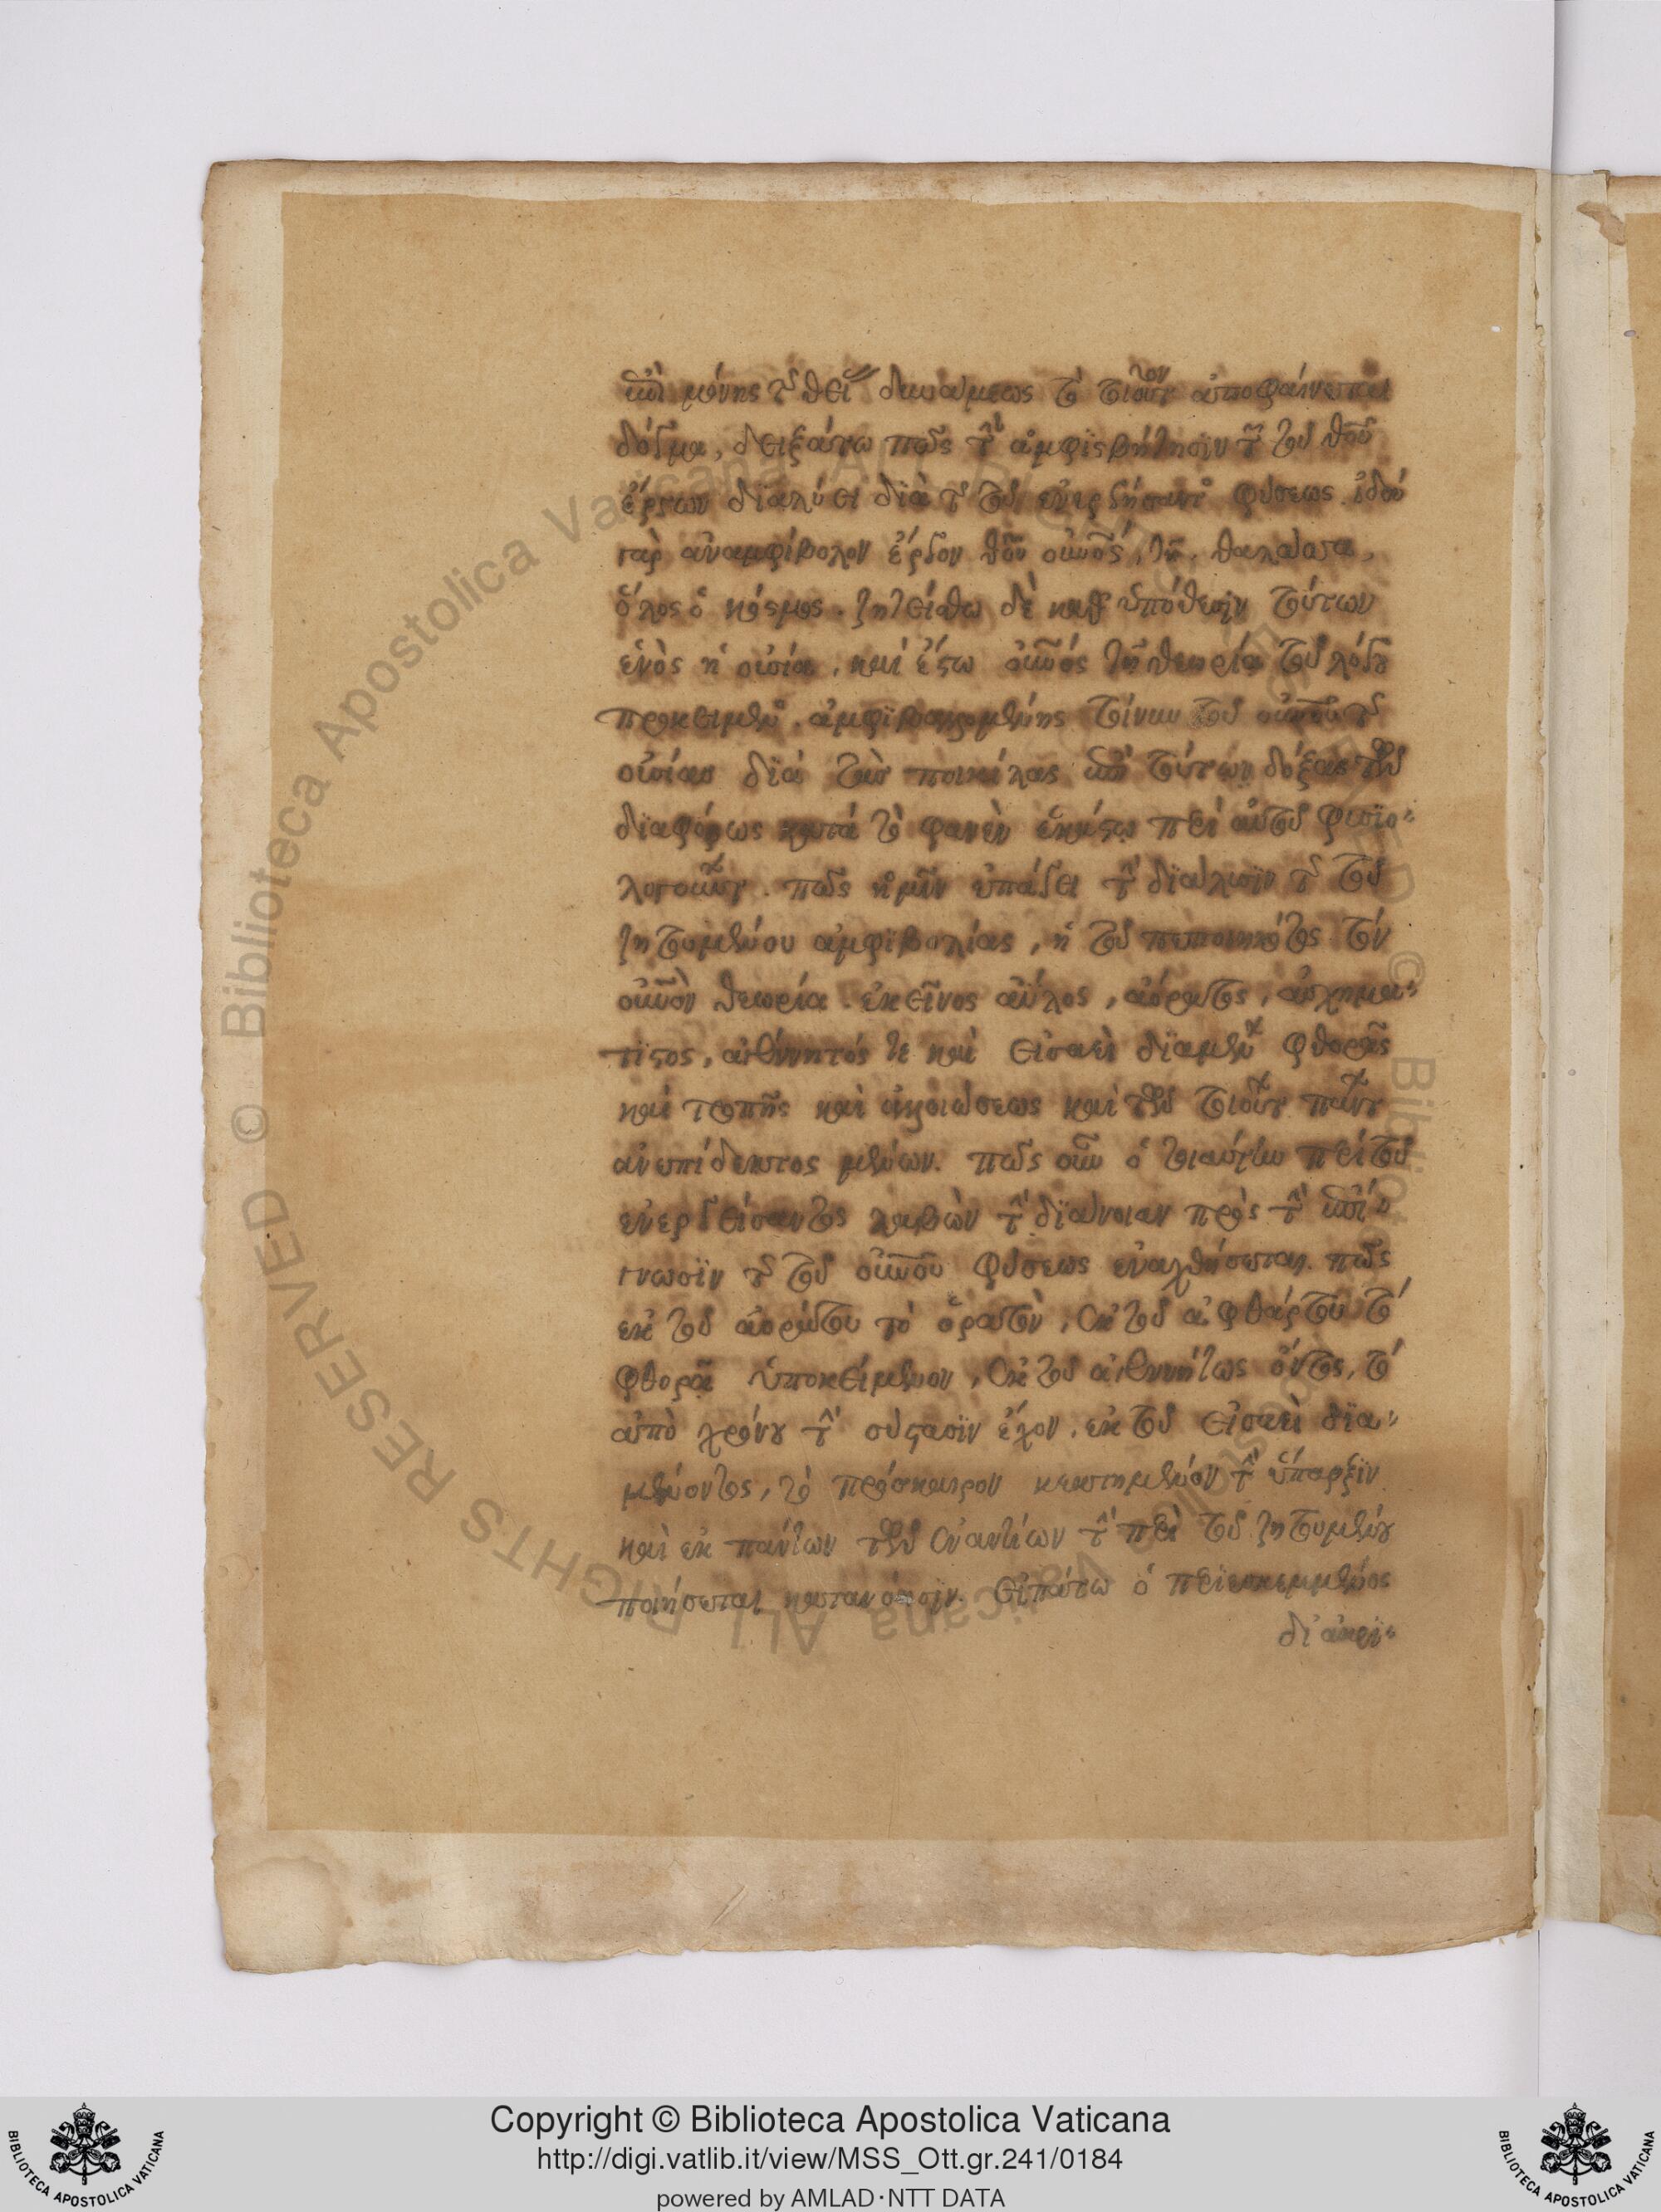 ἐπὶ μόνης τῆς θείας δυνάμεως τὸ τοιοῦτον ἀποφαίνεται
δόγμα, δειξάτω πῶς τὴν ἀμφισβήτησιν τὴν τοῦ θεοῦ
ἔργων διαλύει διὰ τῆς τοῦ ἐνεργήσαντος φύσεως. ἰδοὺ
γὰρ ἀναμφίβολον ἔργον θεοῦ οὐρανός, γῆ, θάλασσα,
ὅλος ὁ κόσμος. ζητείσθω δὲ καθ' ὑπόθεσιν τούτων
ἑνὸς ἡ οὐσία, καὶ ἔστω οὐρανός τῇ θεωρίᾳ τοῦ λόγου
προκείμενος. ἀμφιβαλλομένης τοίνυν τοῦ οὐρανοῦ τῆς
οὐσίας διὰ τὰς ποικίλας ἐπὶ τούτων δόξας τῶν
διαφόρως κατὰ τὸ φανὲν ἑκάστῳ περὶ αὐτοῦ φυσιο-
λογούντων. πῶς ἡμῖν ἐπάγει τὴν διάλυσιν τῆς τοῦ
ζητουμένου ἀμφιβολίας, ἡ τοῦ πεποιηκότος τὸν
οὐρανὸν θεωρία. ἐκεῖνος ἄϋλος, ἀόρατος, ἀσχημά-
τιστος, ἀγέννητός τε καὶ εἰσαεὶ διαμένων φθορᾶς
καὶ τροπῆς καὶ ἀλλοιώσεως καὶ τῶν τοιούτων πάντων
ἀνεπίδεκτος μένων. πῶς οὖν ὁ τοιαύτην περὶ τοῦ
ἐνεργήσαντος λαβὼν τὴν διάνοιαν πρὸς τὴν ἐπί-
γνωσιν τῆς τοῦ οὐρανοῦ φύσεως ἐναχθήσεται. πῶς
ἐκ τοῦ ἀοράτου τὸ ὁρατὸν, ἐκ τοῦ ἀφθάρτου τὸ
φθορᾷ ὑποκείμενον, ἐκ τοῦ ἀγεννήτως ὄντος, τὸ
ἀπὸ χρόνου τὴν σύστασιν ἔχον, ἐκ τοῦ εἰσαεὶ δια-
μένοντος, τὸ πρόσκαιρον κεκτημένον τὴν ὕπαρξιν
καὶ ἐκ πάντων τῶν ἐναντίων τὴν περὶ τοῦ ζητουμένου
ποιήσεται κατανόησιν. εἰπάτω ὁ περιεσκεμμένος
δι' ἀκρι-
Copyright © Biblioteca Apostolica Vaticana
http://digi.vatlib.it/view/MSS_Ott.gr.241/0184
powered by AMLAD·NTT DATA